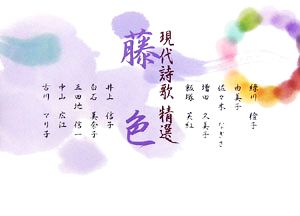 現代詩歌 精選
藤色
緑川 檜子
由美子
佐々木 なぎさ
増田 久美子
飯塚 美紅
井上 信子
白石 美奈子
五田地 信一
中山 広江
古川 マリ子